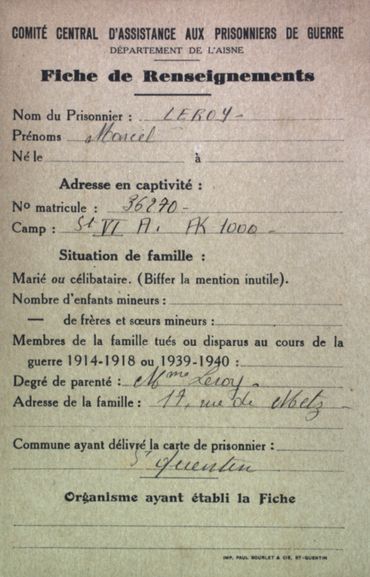 COMITÉ CENTRAL D'ASSISTANCE AUX PRISONNIERS DE GUERRE
DÉPARTEMENT DE L'AISNE
Fiche de Renseignements
Nom du Prisonnier : LEROY -
Prénoms Marcel
Né le à
Adresse en captivité :
No matricule : 36270 -
Camp : St VI A. AK 1000 -
Situation de famille :
Marié ou célibataire. (Biffer la mention inutile).
Nombre d'enfants mineurs :
— de frères et sœurs mineurs :
Membres de la famille tués ou disparus au cours de la
guerre 1914-1918 ou 1939-1940 :
Degré de parenté : Mme Leroy -
Adresse de la famille : 17, rue de Metz -
Commune ayant délivré la carte de prisonnier :
St Quentin
Organisme ayant établi la Fiche
IMP. PAUL BOURLET & CIE, ST-QUENTIN